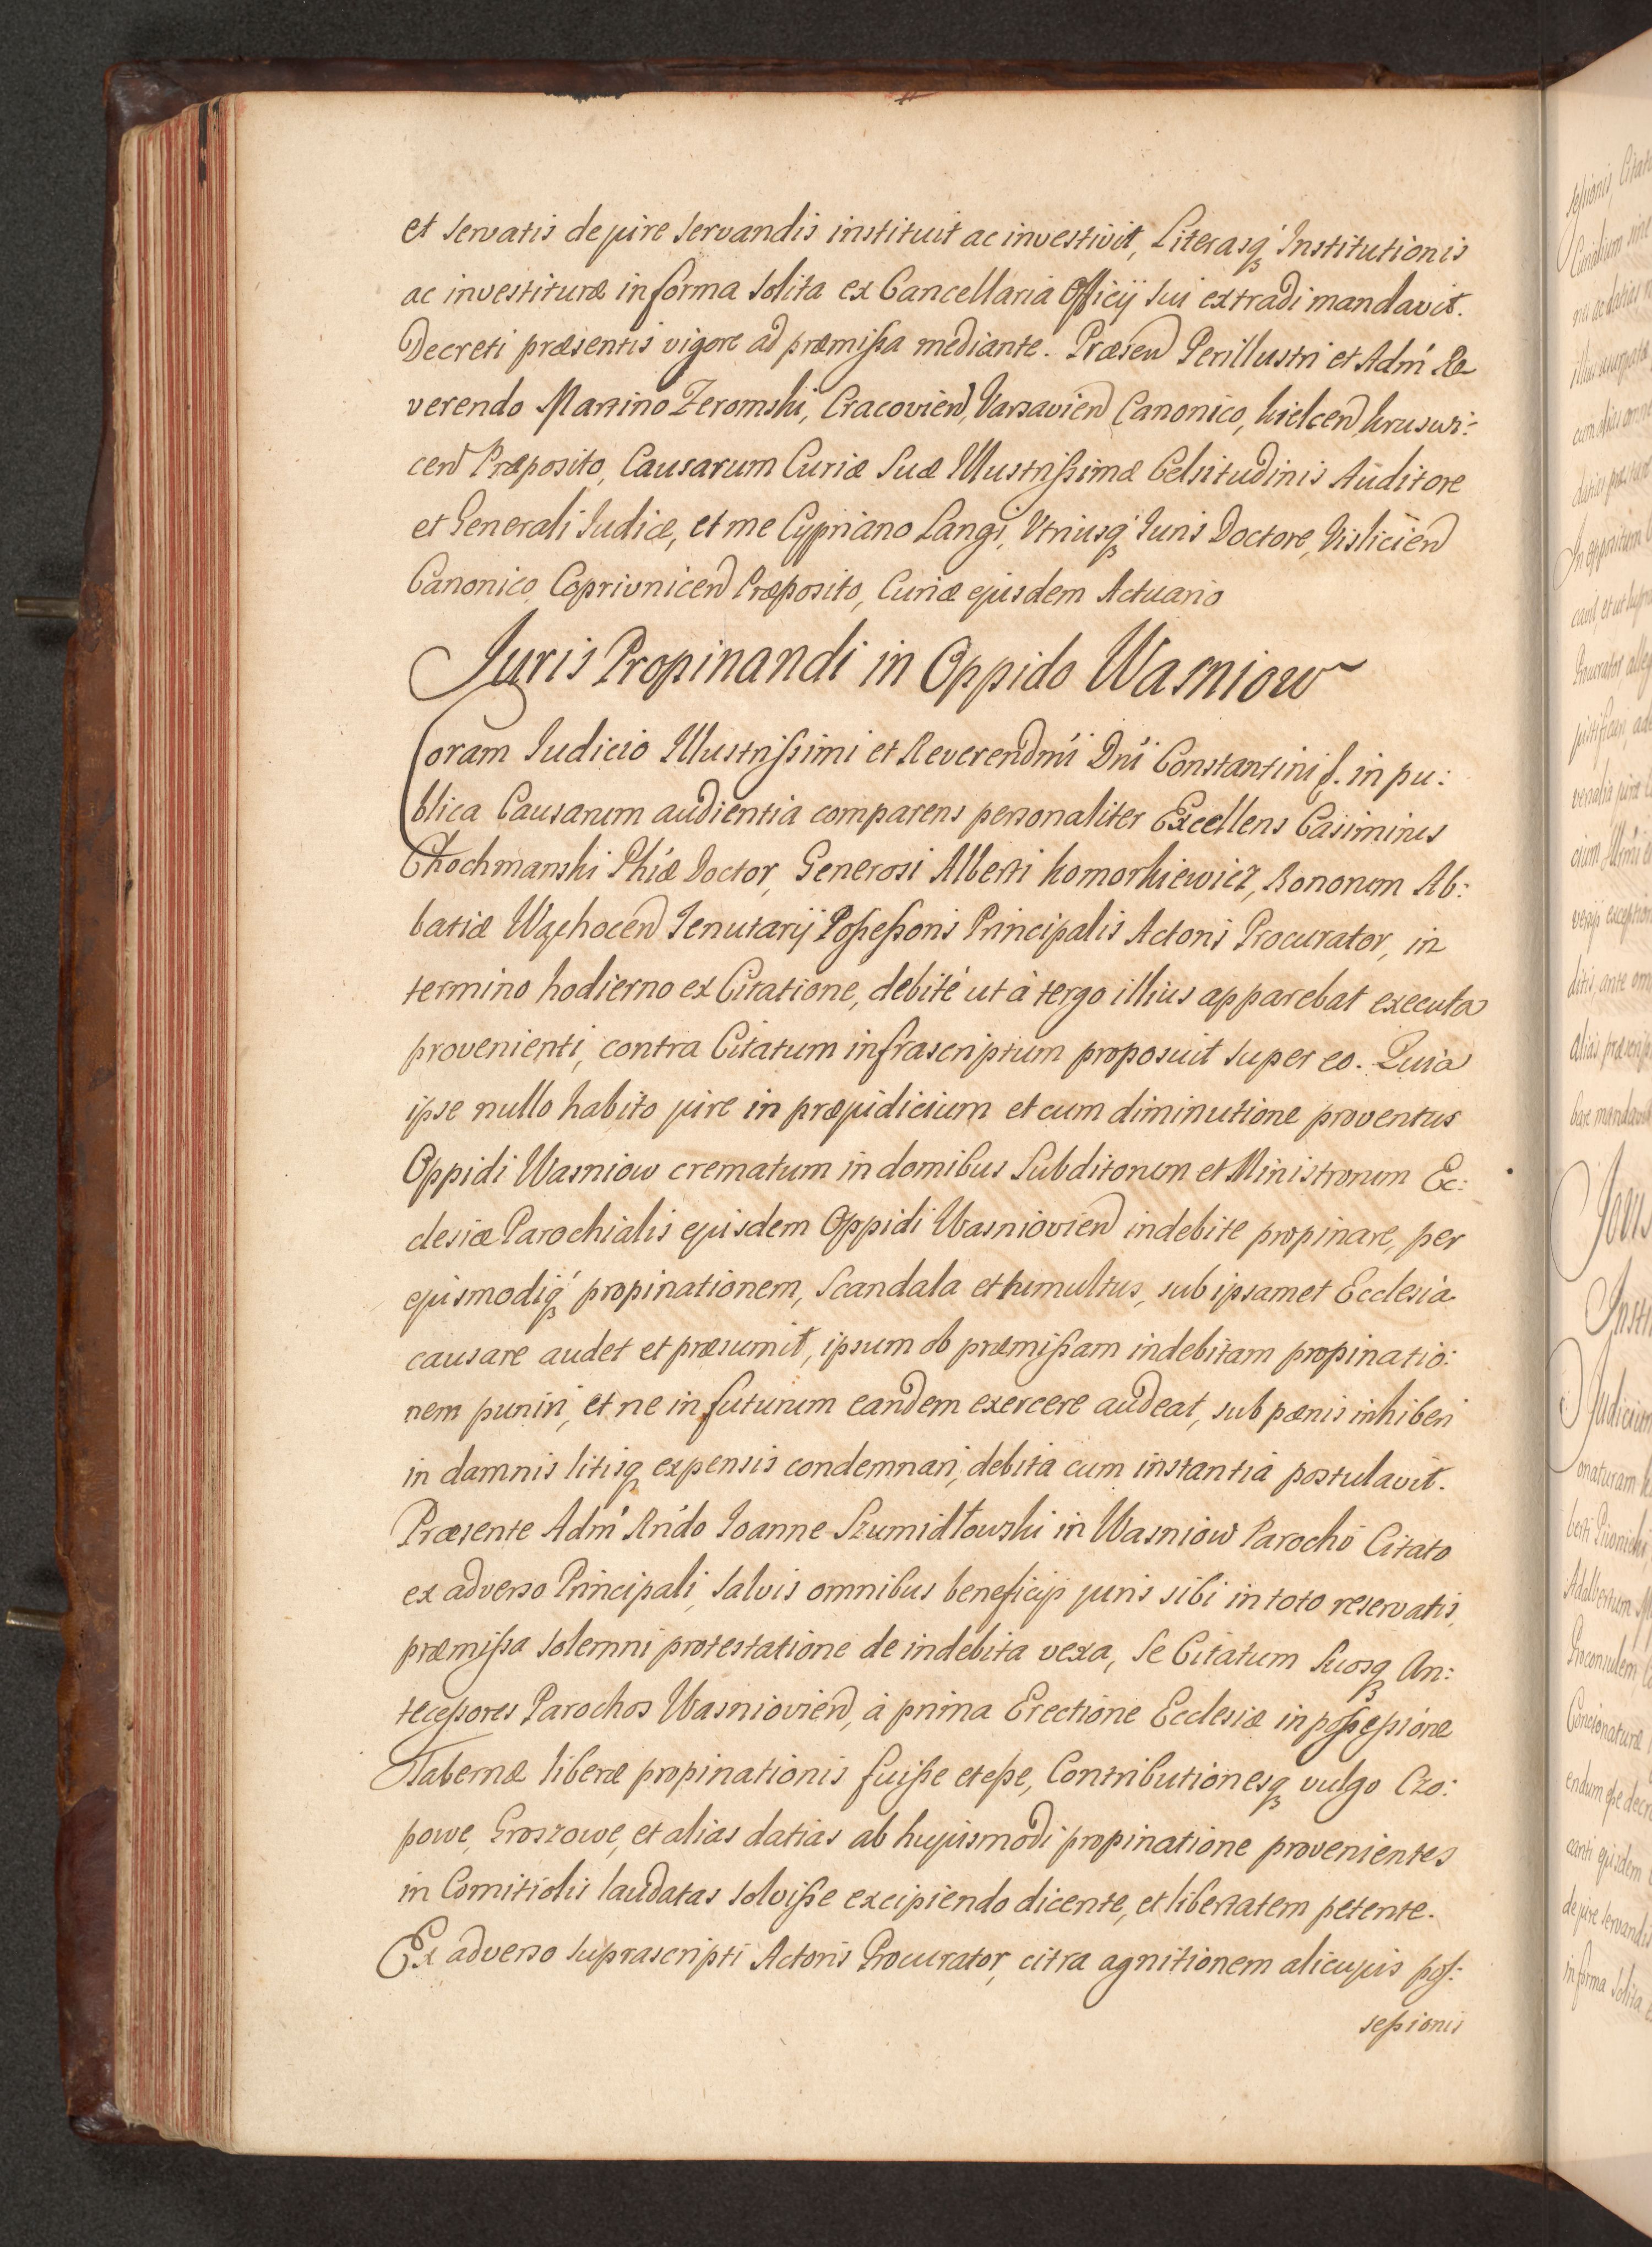 et servatis de jure servandis instituit ac investivit, Literasq́ Institutionis
ac investituræ in forma solita ex Cancellaria Officij sui extradi mandavit.
Decreti præsentis vigore ad præmißa mediante. Præsen Perillustri et Adm̃ Re
verendo Martino Żeromski, Cracovien, Varsavien Canonico, Kielcen, Kruswi:
cen Præposito, Causarum Curiæ Suæ Illustrißimæ Celsitudinis Auditore
et Generali Iudice, et me Cypriano Langi, Utriusq́ Iuris Doctore, Vislicien
Canonico, Coprivnicen Præposito, Curiæ ejusdem Actuario
Juris Propinandi in Oppido Wasniow
Coram Iudicio Illustrißimi et Reverendm̃i Dn̄i Constantini f. in pu:
blica Causarum audientia comparens personaliter Excellens Casimirus
Chochmanski Phiæ Doctor, Generosi Alberti Komorkiewicz, Bonorum Ab:
batiæ Wąchocen Tenutarij Poßeßoris Principalis Actoris Procurator, in
termino hodierno ex Citatione, debitè ut à tergo illius apparebat executa
provenienti, contra Citatum infrascriptum proposuit super eo. Quia
ipse nullo habito jure in præjudicium et cum diminutione proventus
Oppidi Wasniow crematum in domibus Subditorum et Ministrorum Ec:
clesiæ Parochialis ejusdem Oppidi Wasniovien indebite propinare, per
ejusmodiq́ propinationem, Scandala et tumultus, sub ipsamet Ecclesia
causare audet et præsumit, ipsum ob præmißam indebitam propinatio:
nem puniri, et ne in futurum eandem exercere audeat, sub pænis inhiberi
in damnis litisq́ expensis condemnari, debita cum instantia postulavit.
Præsente Adm̃ Rńdo Ioanne Szumidłowski in Wasniow Parocho Citato
ex adverso Principali, salvis omnibus beneficijs juris sibi in toto reservatis,
præmißa solemni protestatione de indebita vexa, se Citatum Suosq́ An:
teceßores Parochos Wasniovien, à prima Erectione Ecclesiæ in poßeßione
Tabernæ liberæ propinationis fuiße et eße, Contributionesq́ vulgo Czo:
powe, Groszowe, et alias datias ab hujusmodi propinatione provenientes
in Comitiolis laudatas solviße excipiendo dicente, et libertatem petente.
Ex adverso suprascripti Actoris Procurator, citra agnitionem alicujus pos:
seßionis